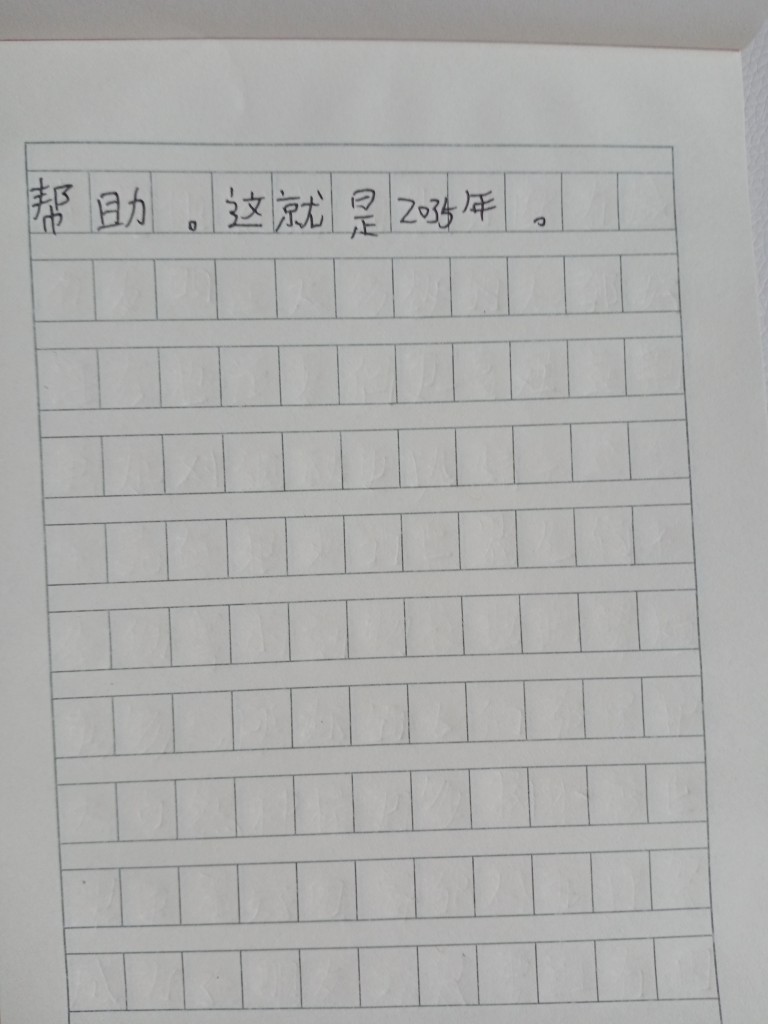 帮助。这就是2035年。